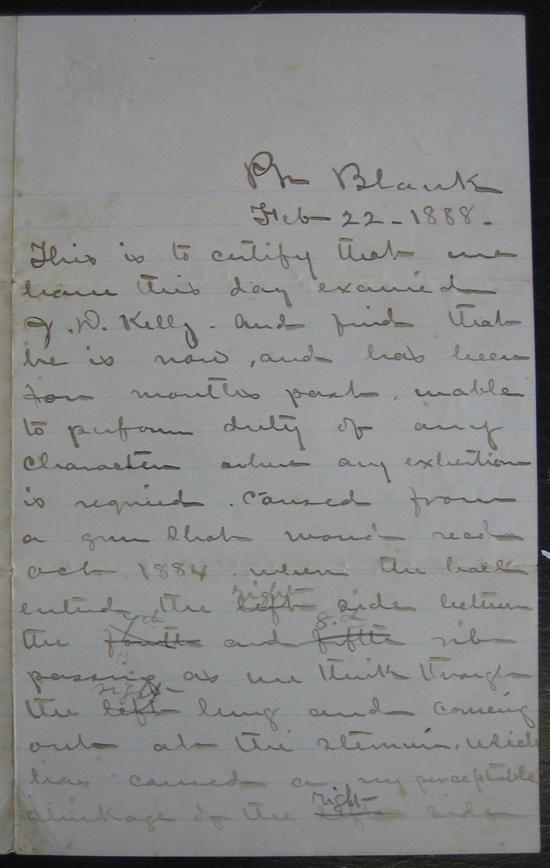 Pt Blank
Feb 22 - 1888 -
This is to certify that we
have this day examied
J. W. Kelly - and find that
he is now, and has been
for months past, unable
to perform duty of any
character where any exhertion
is requied. caused from
a gun shot wound recd
oct 1884. when the ball
right
entered the left side between
7th 8th
the fourth and fifth rib
passing as we think through
right
the left lung and comeing
out at the sternum, which
has caused a perceptable
shinkage of the
right
left side